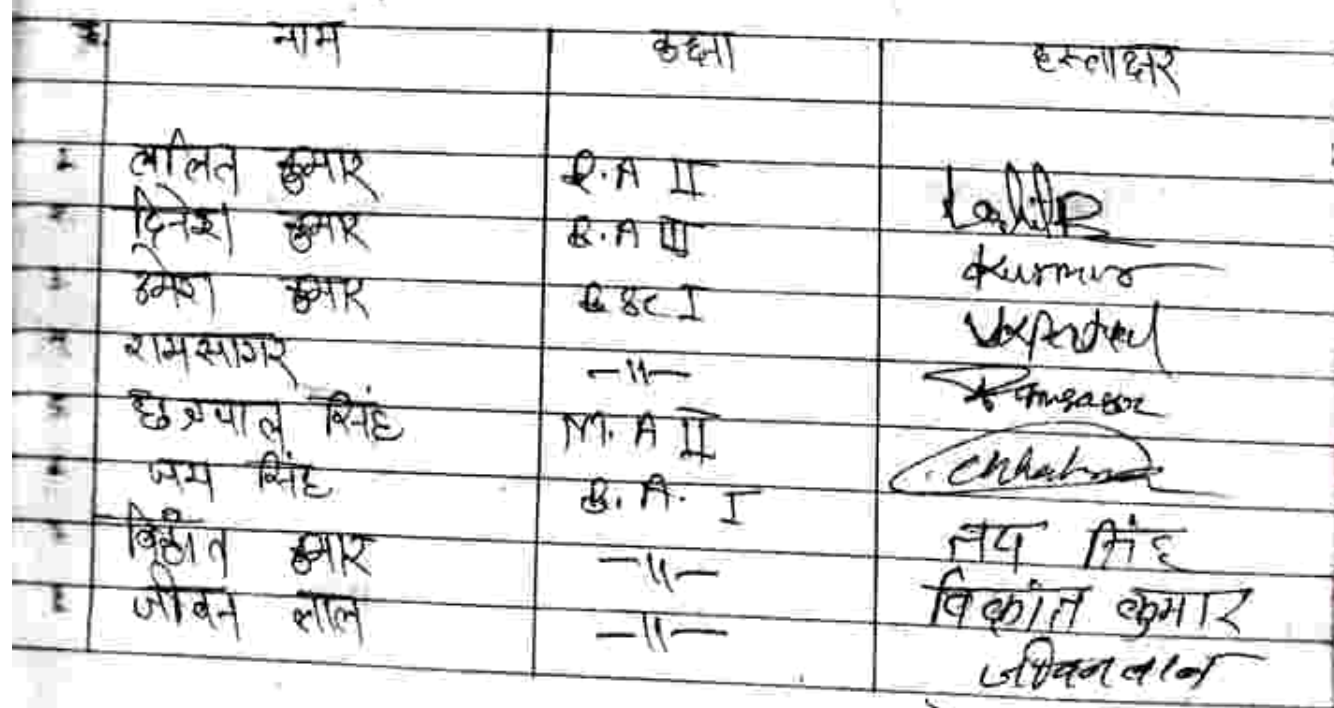 नाम कक्षा हस्ताक्षर
ललित कुमार B.A II Lalit
दिनेश कुमार B.A III Kumar
उमेश कुमार B Sc I
रामसागर —11— Ramsagar
छत्रपाल सिंह M. A II Chhatra
जय सिंह B. A. I जय सिंह
विक्रांत कुमार —11— विक्रांत कुमार
जीवन लाल —11— जीवनलाल